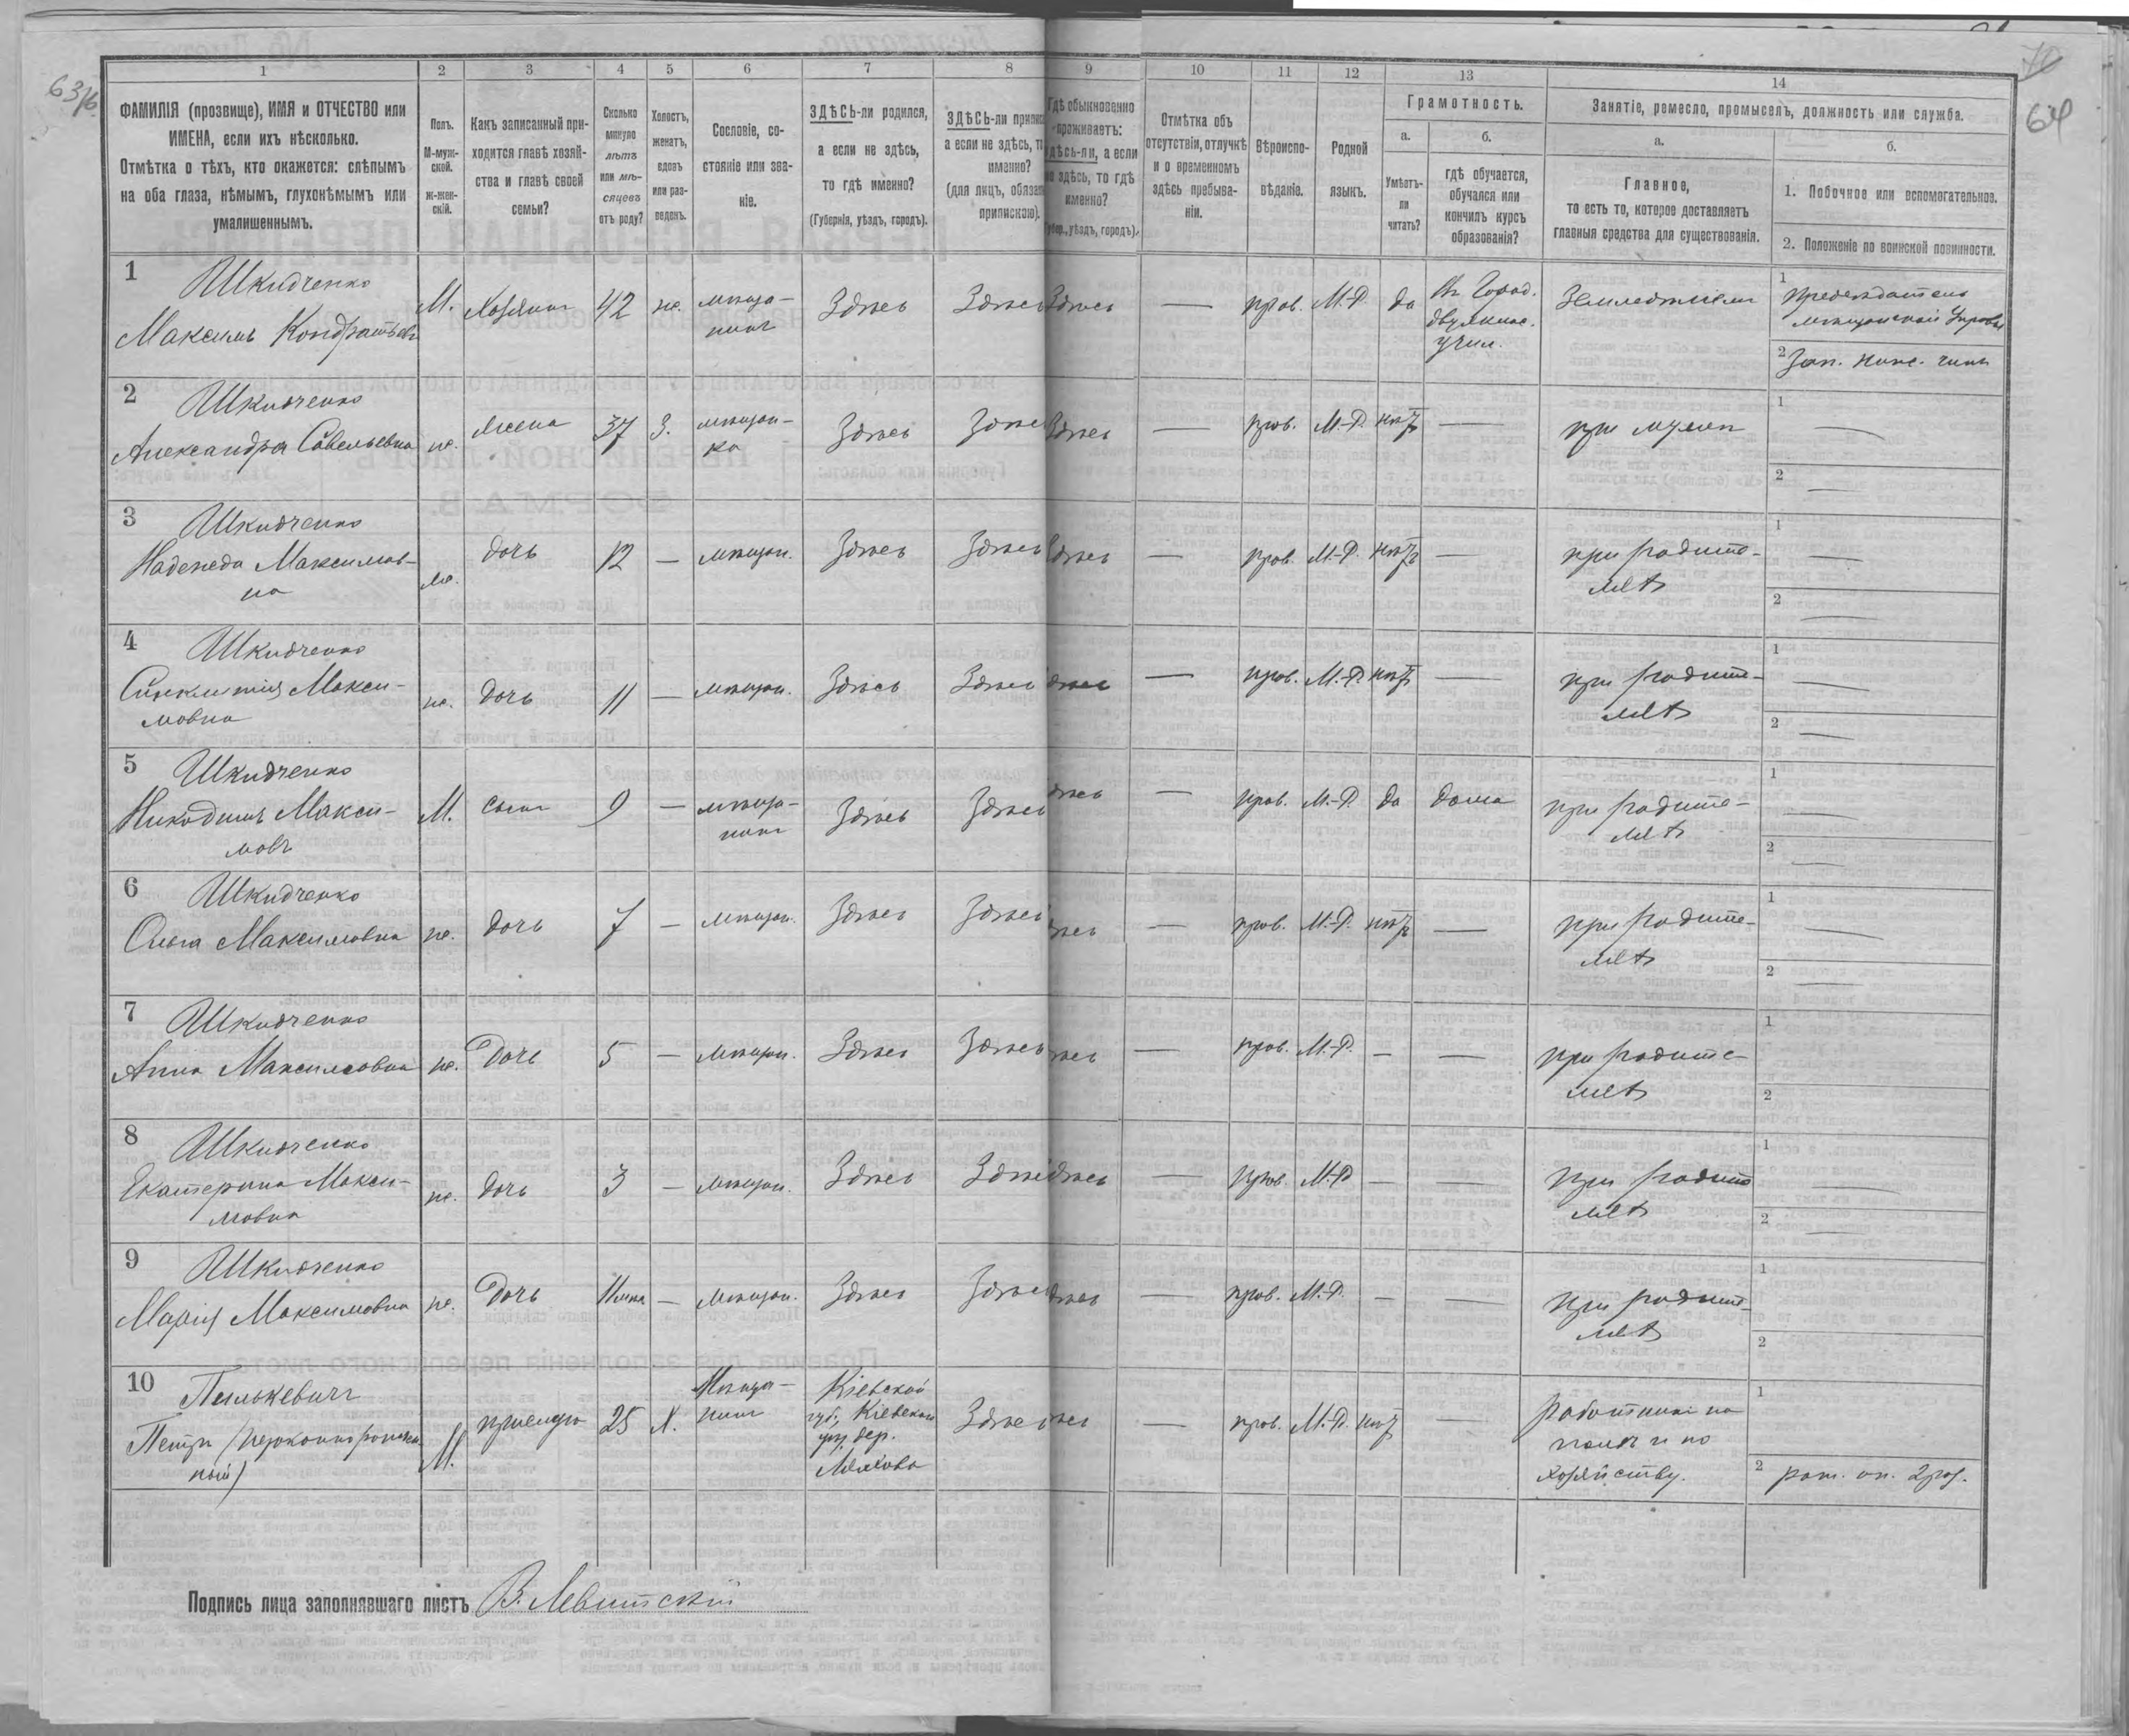 63/б
64
1
2
3
4
5
6
7
8
9
10
11
12
13
14
ФАМИЛІЯ (прозвище), ИМЯ и ОТЧЕСТВО или
ИМЕНА, если ихъ нѣсколько.
Отмѣтка о тѣхъ, кто окажется: слѣпымъ
на оба глаза, нѣмымъ, глухонѣмымъ или
умалишеннымъ.
Полъ.
М-муж-
ской.
ж-жен-
скій.
Какъ записанный при-
ходится главѣ хозяй-
ства и главѣ своей
семьи?
Сколько
минуло
лѣтъ
или мѣ-
сяцевъ
отъ роду?
Холостъ,
женатъ,
вдовъ
или раз-
веденъ.
Сословіе, со-
стояніе или зва-
ніе.
ЗДѢСЬ-ли родился,
а если не здѣсь,
то гдѣ именно?
(Губернія, уѣздъ, городъ).
ЗДѢСЬ-ли припис
а если не здѣсь, т
именно?
(для лицъ, обязан
припискою).
Гдѣ обыкновенно
проживаетъ:
здѣсь-ли, а если
не здѣсь, то гдѣ
именно?
Губер., уѣздъ, городъ).
Отмѣтка объ
отсутствіи, отлучкѣ
и о временномъ
здѣсь пребыва-
ніи.
Вѣроиспо-
вѣданіе.
Родной
языкъ.
Грамотность.
а.
Умѣетъ-
ли
читать?
б.
гдѣ обучается,
обучался или
кончилъ курсъ
образованія?
Занятіе, ремесло, промыселъ, должность или служба.
а.
Главное,
то есть то, которое доставляетъ
главныя средства для существованія.
б.
1. Побочное или вспомогательное.
2. Положеніе по воинской повинности.
1 Шкидченко
Максимъ Кондратьевъ
М. Хозяинъ 42 ж. мѣща-
нинъ
Здѣсь Здѣсь Здѣсь — прав. М.-Р. да Въ Город.
двуклас.
учил.
Земледѣліем
1 Предсѣдатель
мѣщанской Управы
2 Зап. ниж. чинъ
2 Шкидченко
Александра Савельевна ж. жена 37 З. мѣщан-
ка
Здѣсь Здѣсь Здѣсь — прав. М.-Р. нѣтъ — при мужѣ
1 —
2 —
3 Шкидченко
Надежда Максимов-
на
ж. дочь 12 — мѣщан. Здѣсь Здѣсь Здѣсь — прав. М.-Р. нѣтъ — при родите-
лѣ
1 —
2 —
4 Шкидченко
Синклитія Макси-
мовна
ж. дочь 11 — мѣщан. Здѣсь Здѣсь Здѣсь — прав. М.-Р. нѣтъ — при родите-
лѣ
1 —
2 —
5 Шкидченко
Никодимъ Макси-
мовъ
М. сынъ 9 — мѣща-
нинъ
Здѣсь Здѣсь Здѣсь — прав. М.-Р. да дома при родите-
лѣ
1 —
2 —
6 Шкидченко
Ольга Максимовна ж. дочь 7 — мѣщан. Здѣсь Здѣсь Здѣсь — прав. М.-Р. нѣтъ — при родите-
лѣ
1 —
2 —
7 Шкидченко
Анна Максимовна ж. дочь 5 — мѣщан. Здѣсь Здѣсь Здѣсь — прав. М.-Р. — — при родите-
лѣ
1
2
8 Шкидченко
Екатерина Макси-
мовна
ж. дочь 3 — мѣщан. Здѣсь Здѣсь Здѣсь — прав. М.-Р. — — при родите
лѣ
1 —
2 —
9 Шкидченко
Марія Максимовна ж. дочь — мѣщан. Здѣсь Здѣсь Здѣсь — прав. М.-Р. — — при родите-
лѣ
1
2
10 Пилькевичъ
Петръ
М. 25 Х. Мѣща-
нинъ
Кіевской
губ, Кіевскаго
уѣз. дер.
Здѣсь — прав. М.-Р. нѣтъ — работникъ на
полѣ и по
хозяйству.
1
2 рат. оп. 2 раз.
Подпись лица заполнявшаго листъ В. Левитскій